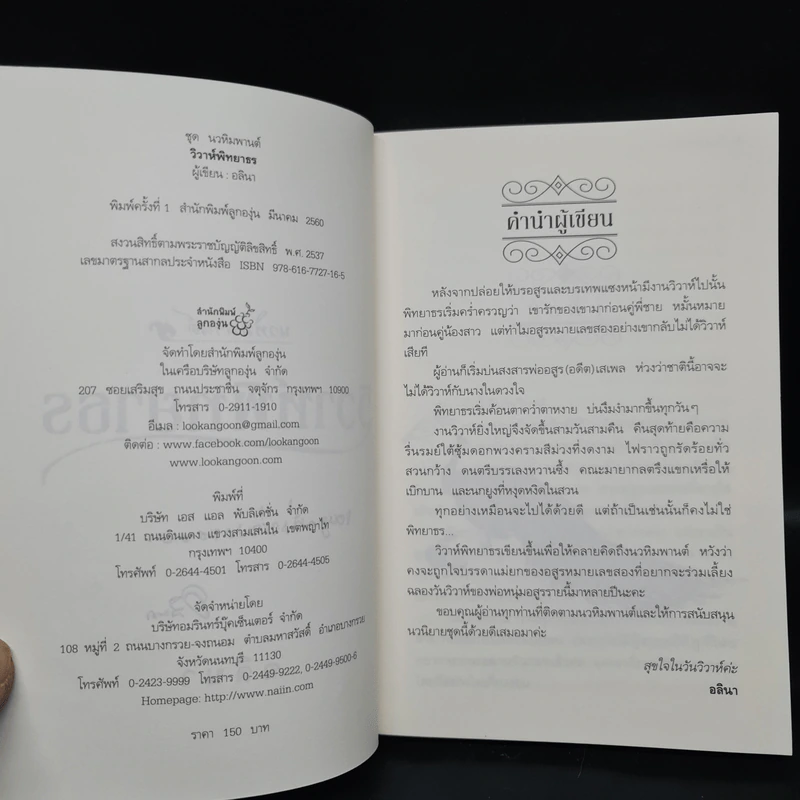 ชุด นวหิมพานต์
วิวาห์พิทยาธร
ผู้เขียน : อลินา
พิมพ์ครั้งที่ 1 สำนักพิมพ์ลูกองุ่น มีนาคม 2560
สงวนสิทธิ์ตามพระราชบัญญัติลิขสิทธิ์ พ.ศ. 2537
เลขมาตรฐานสากลประจำหนังสือ ISBN 978-616-7727-16-5
สำนักพิมพ์
ลูกองุ่น
จัดทำโดยสำนักพิมพ์ลูกองุ่น
ในเครือบริษัทลูกองุ่น จำกัด
207 ซอยเสริมสุข ถนนประชาชื่น จตุจักร กรุงเทพฯ 10900
โทรสาร 0-2911-1910
อีเมล : lookangoon@gmail.com
ติดต่อ : www.facebook.com/lookangoon
www.lookangoon.com
พิมพ์ที่
บริษัท เอส แอล พับลิเคชั่น จำกัด
1/41 ถนนดินแดง แขวงสามเสนใน เขตพญาไท
กรุงเทพฯ 10400
โทรศัพท์ 0-2644-4501 โทรสาร 0-2644-4505
จัดจำหน่ายโดย
บริษัทอมรินทร์บุ๊คเซ็นเตอร์ จำกัด
108 หมู่ที่ 2 ถนนบางกรวย-จงถนอม ตำบลมหาสวัสดิ์ อำเภอบางกรวย
จังหวัดนนทบุรี 11130
โทรศัพท์ 0-2423-9999 โทรสาร 0-2449-9222, 0-2449-9500-6
Homepage: http://www.naiin.com
ราคา 150 บาท
คำนำผู้เขียน
หลังจากปล่อยให้บรอสูรและบรเทพแซงหน้ามีงานวิวาห์ไปนั้น
พิทยาธรเริ่มคร่ำครวญว่า เขารักของเขามาก่อนคู่พี่ชาย หมั้นหมาย
มาก่อนคู่น้องสาว แต่ทำไมอสูรหมายเลขสองอย่างเขากลับไม่ได้วิวาห์
เสียที
ผู้อ่านก็เริ่มบ่นสงสารพ่ออสูร (อดีต) เสเพล ห่วงว่าชาตินี้อาจจะ
ไม่ได้วิวาห์กับนางในดวงใจ
พิทยาธรเริ่มค้อนตาคว่ำตาหงาย บ่นงึมงำมากขึ้นทุกวันๆ
งานวิวาห์ยิ่งใหญ่จึงจัดขึ้นสามวันสามคืน คืนสุดท้ายคือความ
รื่นรมย์ใต้ซุ้มดอกพวงครามสีม่วงที่งดงาม ไฟราวถูกรัดร้อยทั่ว
สวนกว้าง ดนตรีบรรเลงหวานซึ้ง คณะมายากลตรึงแขกเหรื่อให้
เบิกบาน และนกยูงที่หงุดหงิดในสวน
ทุกอย่างเหมือนจะไปได้ด้วยดี แต่ถ้าเป็นเช่นนั้นก็คงไม่ใช่
พิทยาธร...
วิวาห์พิทยาธรเขียนขึ้นเพื่อให้คลายคิดถึงนวหิมพานต์ หวังว่า
คงจะถูกใจบรรดาแม่ยกของอสูรหมายเลขสองที่อยากจะร่วมเลี้ยง
ฉลองวันวิวาห์ของพ่อหนุ่มอสูรรายนี้มาหลายปีนะคะ
ขอบคุณผู้อ่านทุกท่านที่ติดตามนวหิมพานต์และให้การสนับสนุน
นวนิยายชุดนี้ด้วยดีเสมอมาค่ะ
สุขใจในวันวิวาห์ค่ะ
อลินา